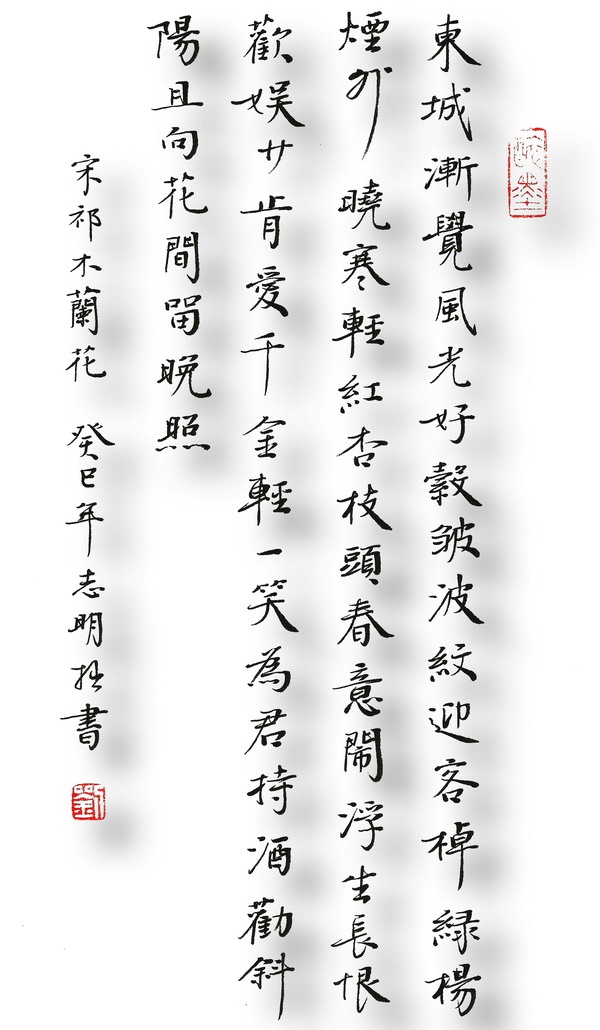 東城漸覺風光好縠皺波紋迎客棹綠楊
煙外曉寒輕紅杏枝頭春意鬧浮生長恨
歡娛少肯愛千金輕一笑為君持酒勸斜
陽且向花間留晚照
宋祁木蘭花 癸巳年志明書
劉